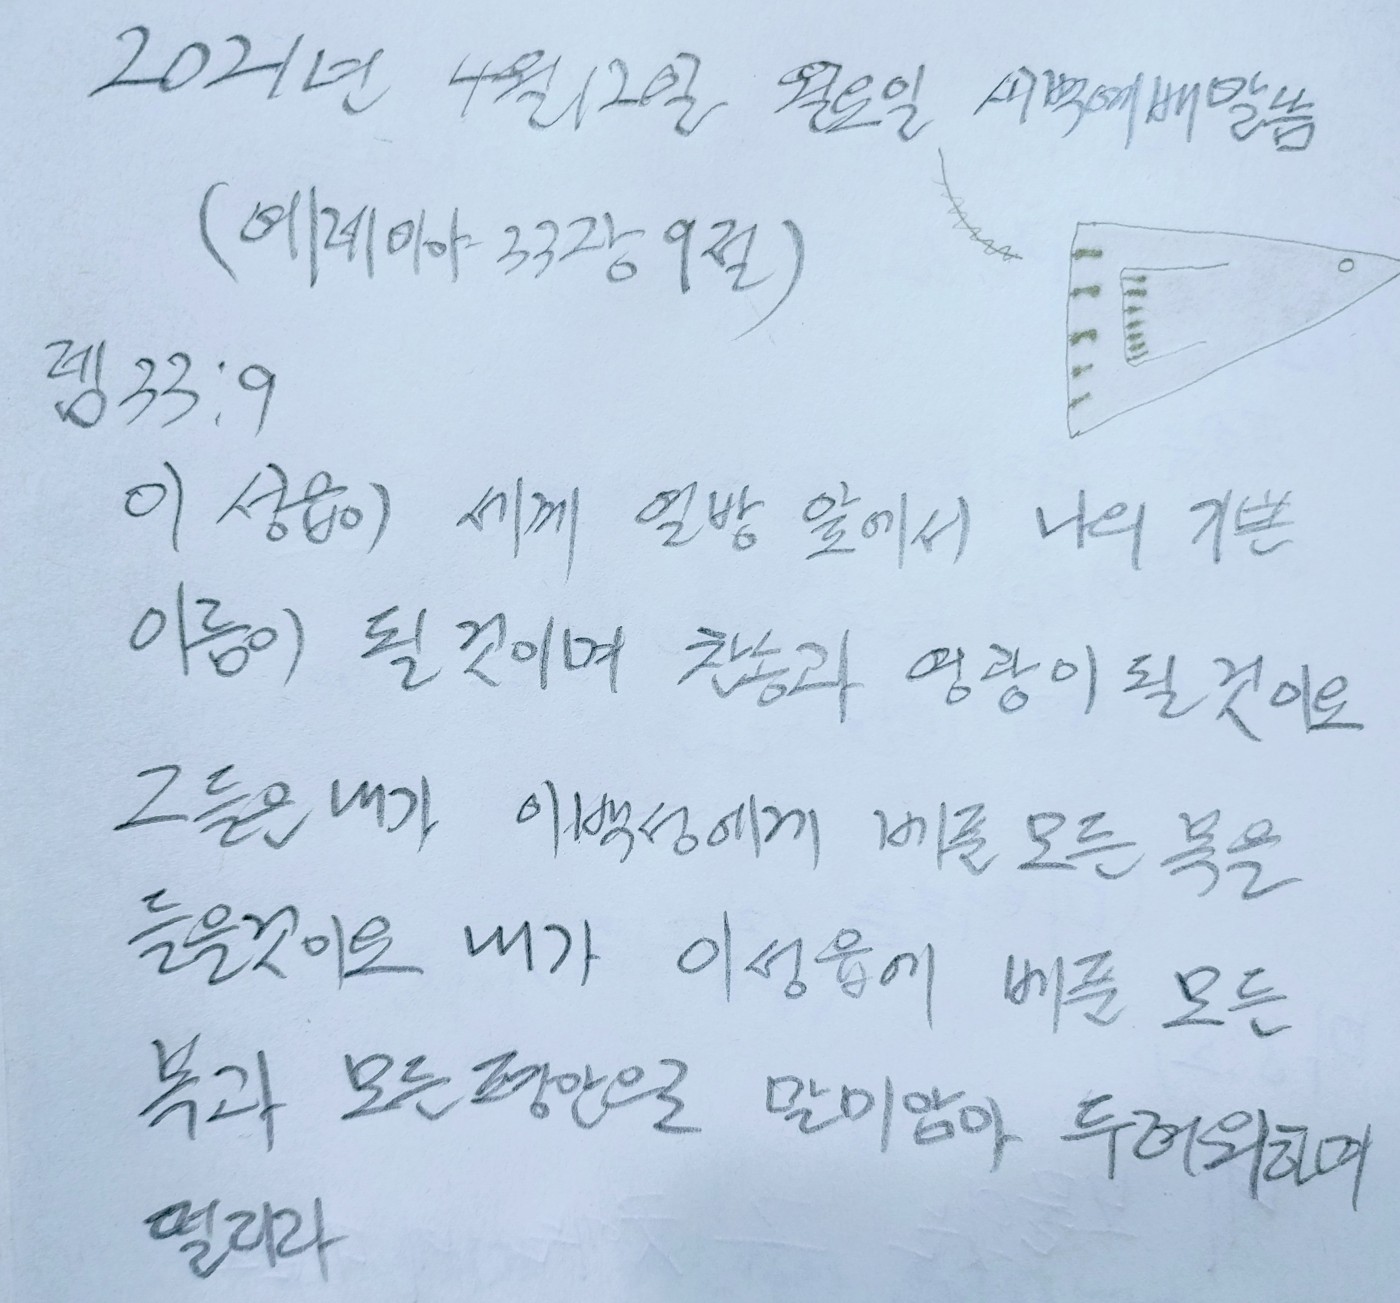 2021년 4월12일 월요일 새벽예배말씀
(예레미야 33장 9절)
렘33:9
이 성읍이 세계 열방 앞에서 나의 기쁜
이름이 될 것이며 찬송과 영광이 될것이요
그들은 내가 이백성에게 베푼 모든 복을
들을것이요 내가 이성읍에 베푼 모든
복과 모든평안으로 말미암아 두려워하며
떨리라